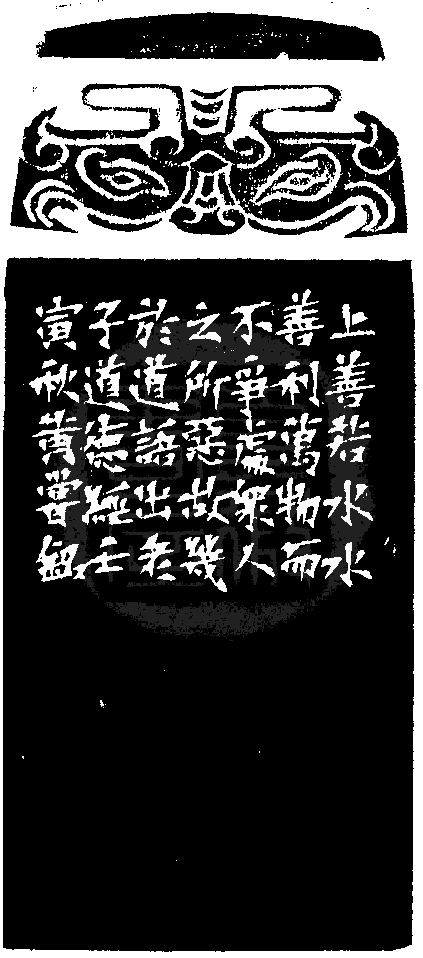 上善若水水
善利萬物而
不爭處衆人
之所惡故幾
於道語出老
子道德經壬
寅秋黃嘗鈕